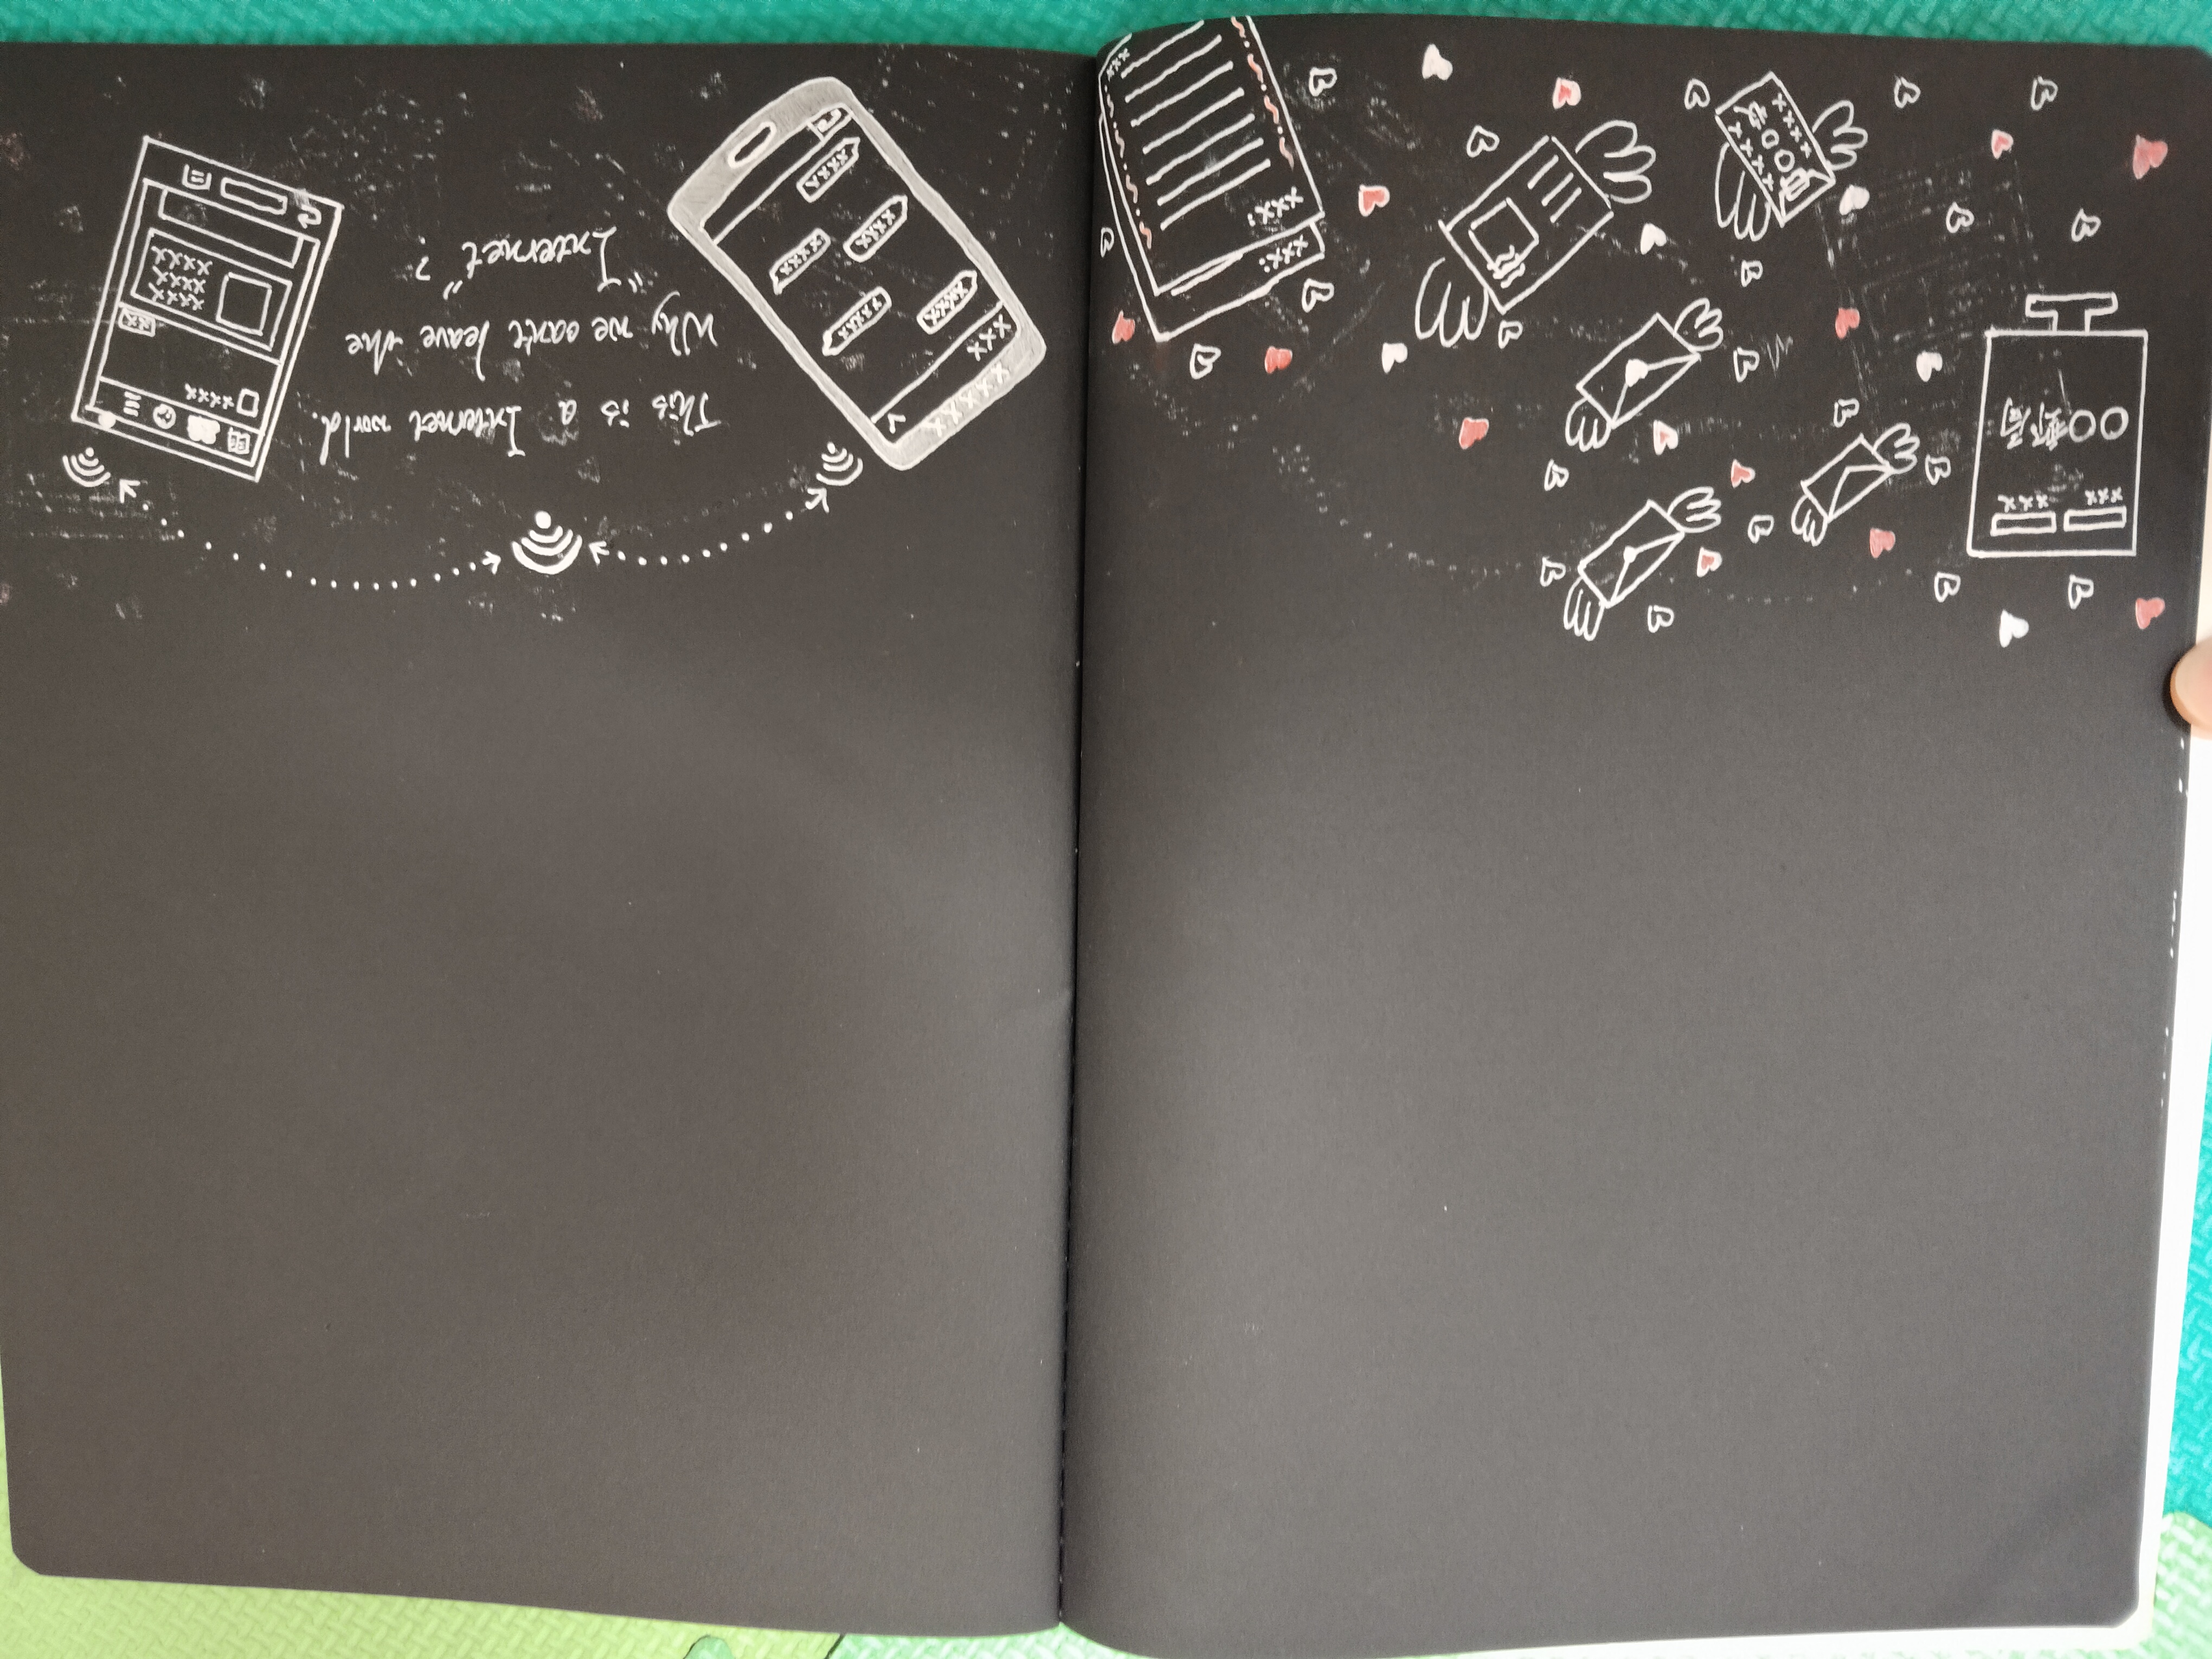 xxx xxx
○○郵局
○○○收
xxxxx
xxxxx
xxx:
xxx:
xxx
xxxxxx
xxx
xxxx
xxxxx
xxxx
xxxx
xxxx
This is a Internet world.
Why we can't leave the
"Internet"?
xxxx
xx
xxxx
xxxx
xxxx